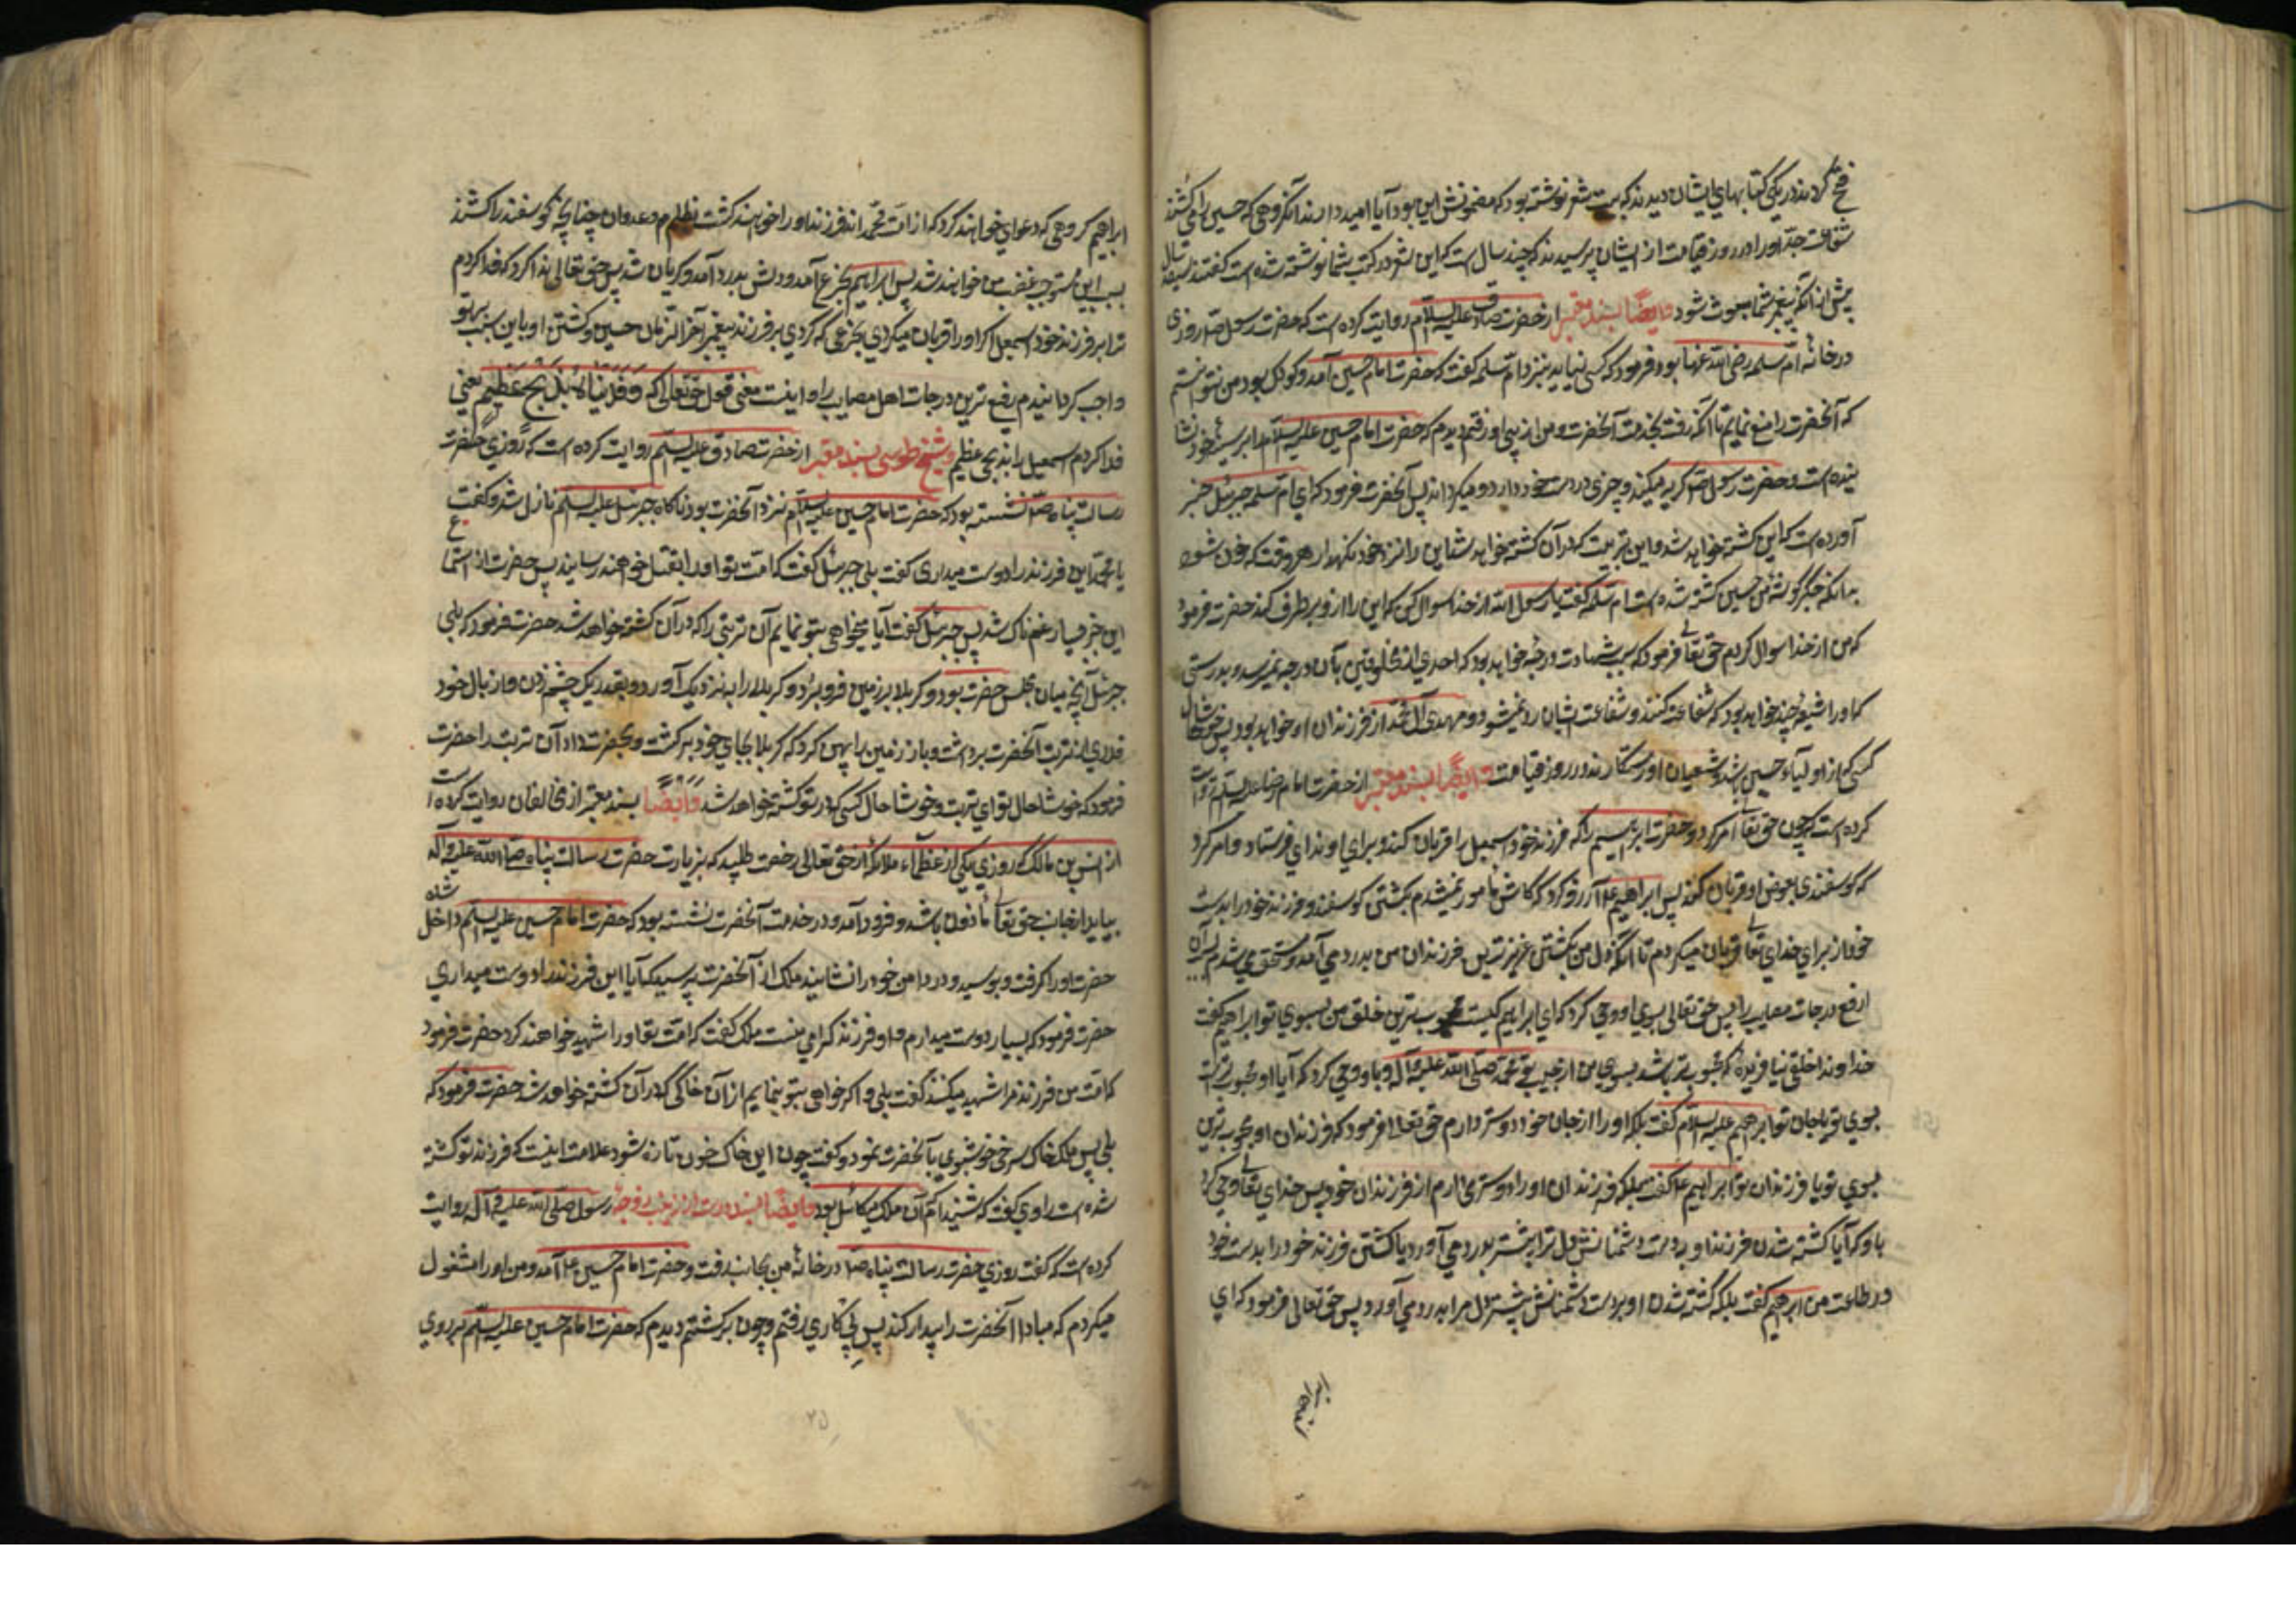 فتح کردند در یکی کتابهای ایشان دیدند که بیت شعر نوشته بود که مضمونش این بود آیا امید دارند آنگروهی که حسین را می کشند
شفاعت جد او را در روز قیامت از ایشان پرسیدند که چند سال است که این شعر در کتب شما نوشته شده است گفتند سیصد سال
پیش از آنکه پیغمبر شما مبعوث شود وایضًا بسند معتبر از حضرت صادق علیه السلام روایت کرده است که حضرت رسول صلم روزی
در خانهٔ ام سلمه رضی الله عنها بود فرمود که کسی نیاید بنزد ام سلمه گفت که حضرت امام حسین آمد و کوکل بود من نتوانستم
که آنحضرت را منع نمایم تا آنکه رفت بخدمت آنحضرت و من از پی او رفتم دیدم که حضرت امام حسین علیه السلام را بر سینهٔ خود نشا
نیده است و حضرت رسول صلم گریه میکند و چیزی در دست خود دارد و میگرداند پس آنحضرت فرمود که ای ام سلمه جبرئیل خبر
آورده است که این کشته خواهد شد و این تربیت که در آن کشته خواهد شد این را نزد خود نگهدار هر وقت که خون شود
بدانکه جگرگوشهٔ من حسین کشته شده است ام سلمه گفت یا رسول الله از خدا سوال کن که این را از و برطرف کند حضرت فرمود
که من از خدا سوال کردم حق تعالی فرمود که بسبب شهادت درجهٔ خواهد بود که احدی از مخلوقین بآن درجه نمیرسد و بدرستی
که او را شیعهٔ چند خواهد بود که شفاعت کنند و شفاعت ایشان رد نمیشود و مهدی آل محمد از فرزندان او خواهد بود پس خوشا حال
کسی که از اولیاء حسین باشد و شیعیان او رستگارند در روز قیامت وایضًا بسند معتبر از حضرت امام رضا علیه السلام روایت
کرده است که چون حق تعالی امر کرد و حضرت ابراهیم را که فرزند خود اسمعیل را قربان کند و برای او فدای فرستاد و امر کرد
که گوسفندی بعوض او قربان کند پس ابراهیم علا آرزو کرد که کاش مامور نمیشدم بکشتن گوسفند و فرزند خود را بدست
خود از برای خدای تعالی قربان میکردم تا آنکه دل من بکشتن عزیزترین فرزندان من بدرد می آمد و مستحق میشدم بسبب آن
ارفع درجات مصایب را پس حق تعالی بسوی او وحی کرد که ای ابراهیم کیست محبوب ترین خلق من بسوی تو ابراهیم گفت
خداوندا خلقی نیافریدهٔ که محبوب تر باشد بسوی من از حبیب تو محمد صلی الله علیه و آله و باو وحی کرد که آیا او محبوب تر است
بسوی تو یا جان تو ابراهیم علیه السلام گفت بلکه او را از جان خود دوستر دارم حق تعالی فرمود که فرزندان او محبوب ترین
بسوی تو یا فرزندان تو ابراهیم علا گفت بلکه فرزندان او را دوستر میدارم از فرزندان خود پس خدای تعالی وحی کرد
باو که آیا کشته شدن فرزند او بر دست دشمنانش دل ترا بیشتر بدرد می آورد یا کشتن فرزند خود را بدست خود
در طاعت من ابراهیم گفت بلکه کشته شدن او بر دست دشمنانش بیشتر دل مرا بدرد می آورد پس حق تعالی فرمود که ای
ابراهیم
ابراهیم گروهی که دعوای خواهند کرد که از امت محمد اند فرزند او را خواهند کشت بظلم و عدوان چنانچه گوسفند را کشند
بسبب این مستوجب غضب من خواهند شد پس ابراهیم بجزع آمد و دلش بدرد آمد و گریان شد پس حق تعالی ندا کرد که فدا کردم
ترا بر فرزند خود اسمعیل اگر او را قربان میکردی بجزعی که کردی بر فرزند پیغمبر آخر الزمان حسین و کشتن او باین سبب بر تو
واجب گردانیدم رفیع ترین درجات اهل مصایب را و اینست معنی قول حق تعالی که وَفَدَیْنَاهُ بِذِبْحٍ عَظِیمٍ یعنی
فدا کردم اسمعیل را بذبحی عظیم وشیخ طوسی بسند معتبر از حضرت صادق علیه السلم روایت کرده است که روزی حضرت
رسالت پناه صلم نشسته بود که حضرت امام حسین علیه السلام نزد آنحضرت بود ناگاه جبرئیل علیه السلم نازل شد و گفت
یا محمد این فرزند را دوست میداری گفت بلی جبرئیل گفت که امت تو او را بقتل خواهند رسانید پس حضرت از استماع
این خبر بسیار غمناک شد پس جبرئیل گفت آیا میخواهی بتو نمایم آن تربتی را که در آن کشته خواهد شد حضرت فرمود که بلی
جبرئیل آنچه میان مجلس حضرت بود و کربلا بر زمین فرو برد و کربلا را به نزدیک آورد و بقدر یک چشم زدن و از بال خود
قدری از تربت آنحضرت برداشت و باز زمین را پهن کرد که کربلا بجای خود برگشت و بحضرت داد آن تربت را حضرت
فرمود که خوشا حال تو ای تربت و خوشا حال کسی که در تو کشته خواهد شد وَاَیضًا بسند معتبر از مخالفان روایت کرده است
از انس بن مالک که روزی یکی از عظمآء ملائکه از حق تعالی رخصت طلبید که بزیارت حضرت رسالت پناه صلی الله علیه و آله
بیاید از جانب حق تعالی ماذون باشد و فرود آمد و در خدمت آنحضرت نشسته بود که حضرت امام حسین علیه السلم داخل شده
حضرت او را گرفت و بوسید و در دامن خود را نشانید ملک از آنحضرت پرسید که آیا این فرزند را دوست میداری
حضرت فرمود که بسیار دوست میدارم و او فرزند گرامی منست ملک گفت که امت تو او را شهید خواهند کرد حضرت فرمود
که امت من فرزند مرا شهید میکنند گفت بلی و اگر خواهی بتو بنمایم از آن خاکی که در آن کشته خواهد شد حضرت فرمود که
بلی پس ملک خاک سرخ خوشبوی بآنحضرت نمود و گفت چون این خاک خون تازه شود علامت اینست که فرزند تو کشته
شده است راوی گفت که شنیدام آن ملک میکائیل بود وایضًا بسند درست از زینب زوجهٔ رسول صلی الله علیه و آله روایت
کرده است که گفت روزی حضرت رسالت پناه صلم در خانهٔ من بخواب رفت و حضرت امام حسین علا آمد و من او را مشغول
میکردم که مبادا آنحضرت را بیدار کند پس پی کاری رفتم و چون برگشتم دیدم که حضرت امام حسین علیه السلم بر روی
۲۵